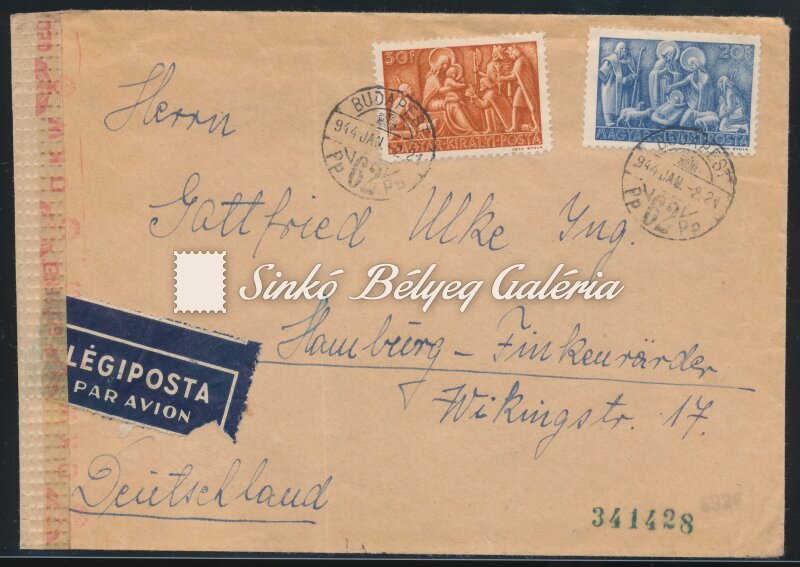 30f
20f
MAGYAR KIRÁLYI POSTA
MAGYAR
POSTA
BUDAPEST
944 JAN. -2. 21
62
PP PP
BUDAPEST
944 JAN. -2. 24
62
PP PP
Herrn
Gottfried Ulke Ing.
Sinkó Bélyeg Galéria
Hamburg – Finkenwärder
Wikingstr. 17.
LÉGIPOSTA
PAR AVION
Deutschland
341428